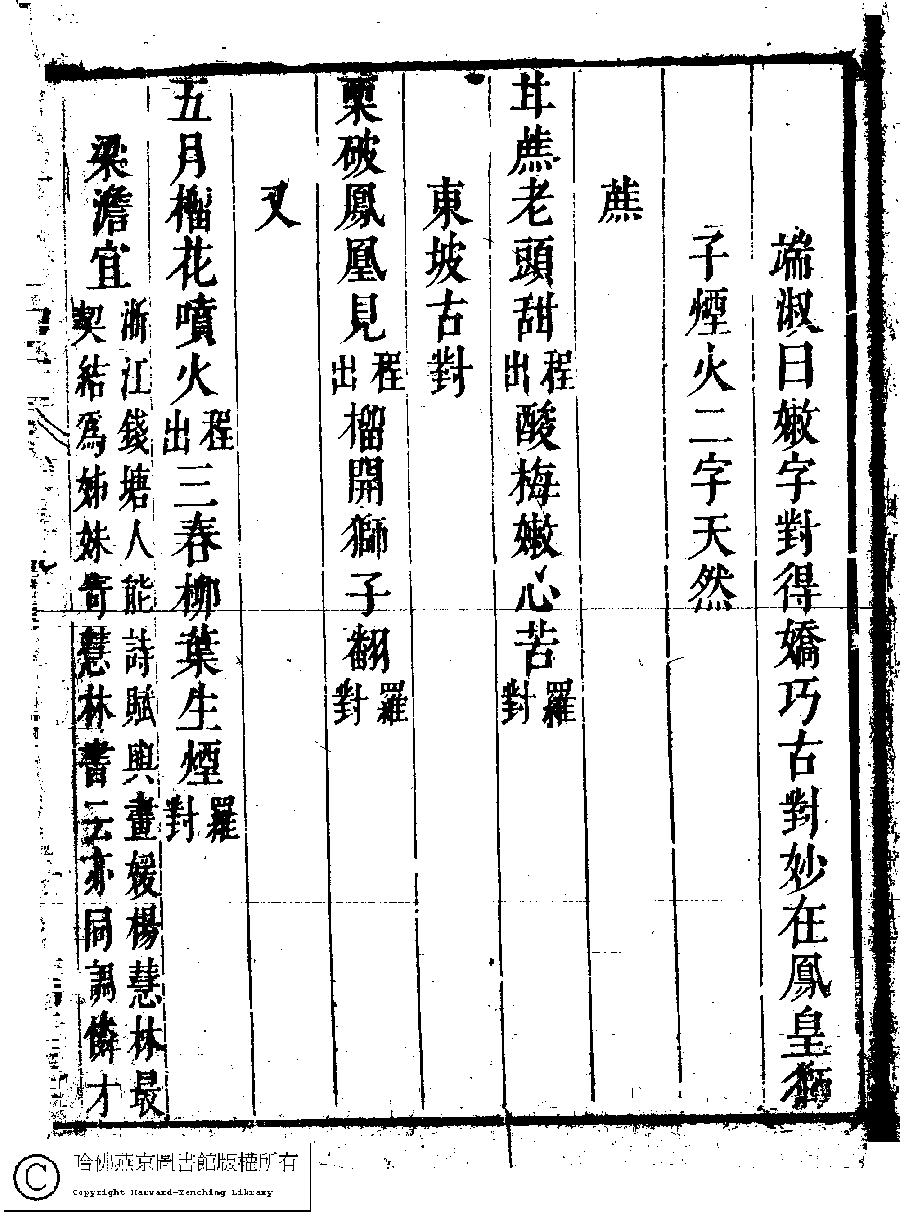 端淑曰嫩字對得嬌巧古對妙在鳳皇獅
子煙火二字天然
蔗
甘蔗老頭甜程出酸梅嫩心苦羅對
東坡古對
栗破鳳凰見程出榴開獅子翻羅對
又
五月榴花噴火程出三春柳葉生煙羅對
梁澹宜浙江錢塘人能詩賦與畫媛楊慧林最
契結爲姊妹寄慧林書云亦同調憐才
哈佛燕京圖書館版權所有
Copyright Harvard-Yenching Library